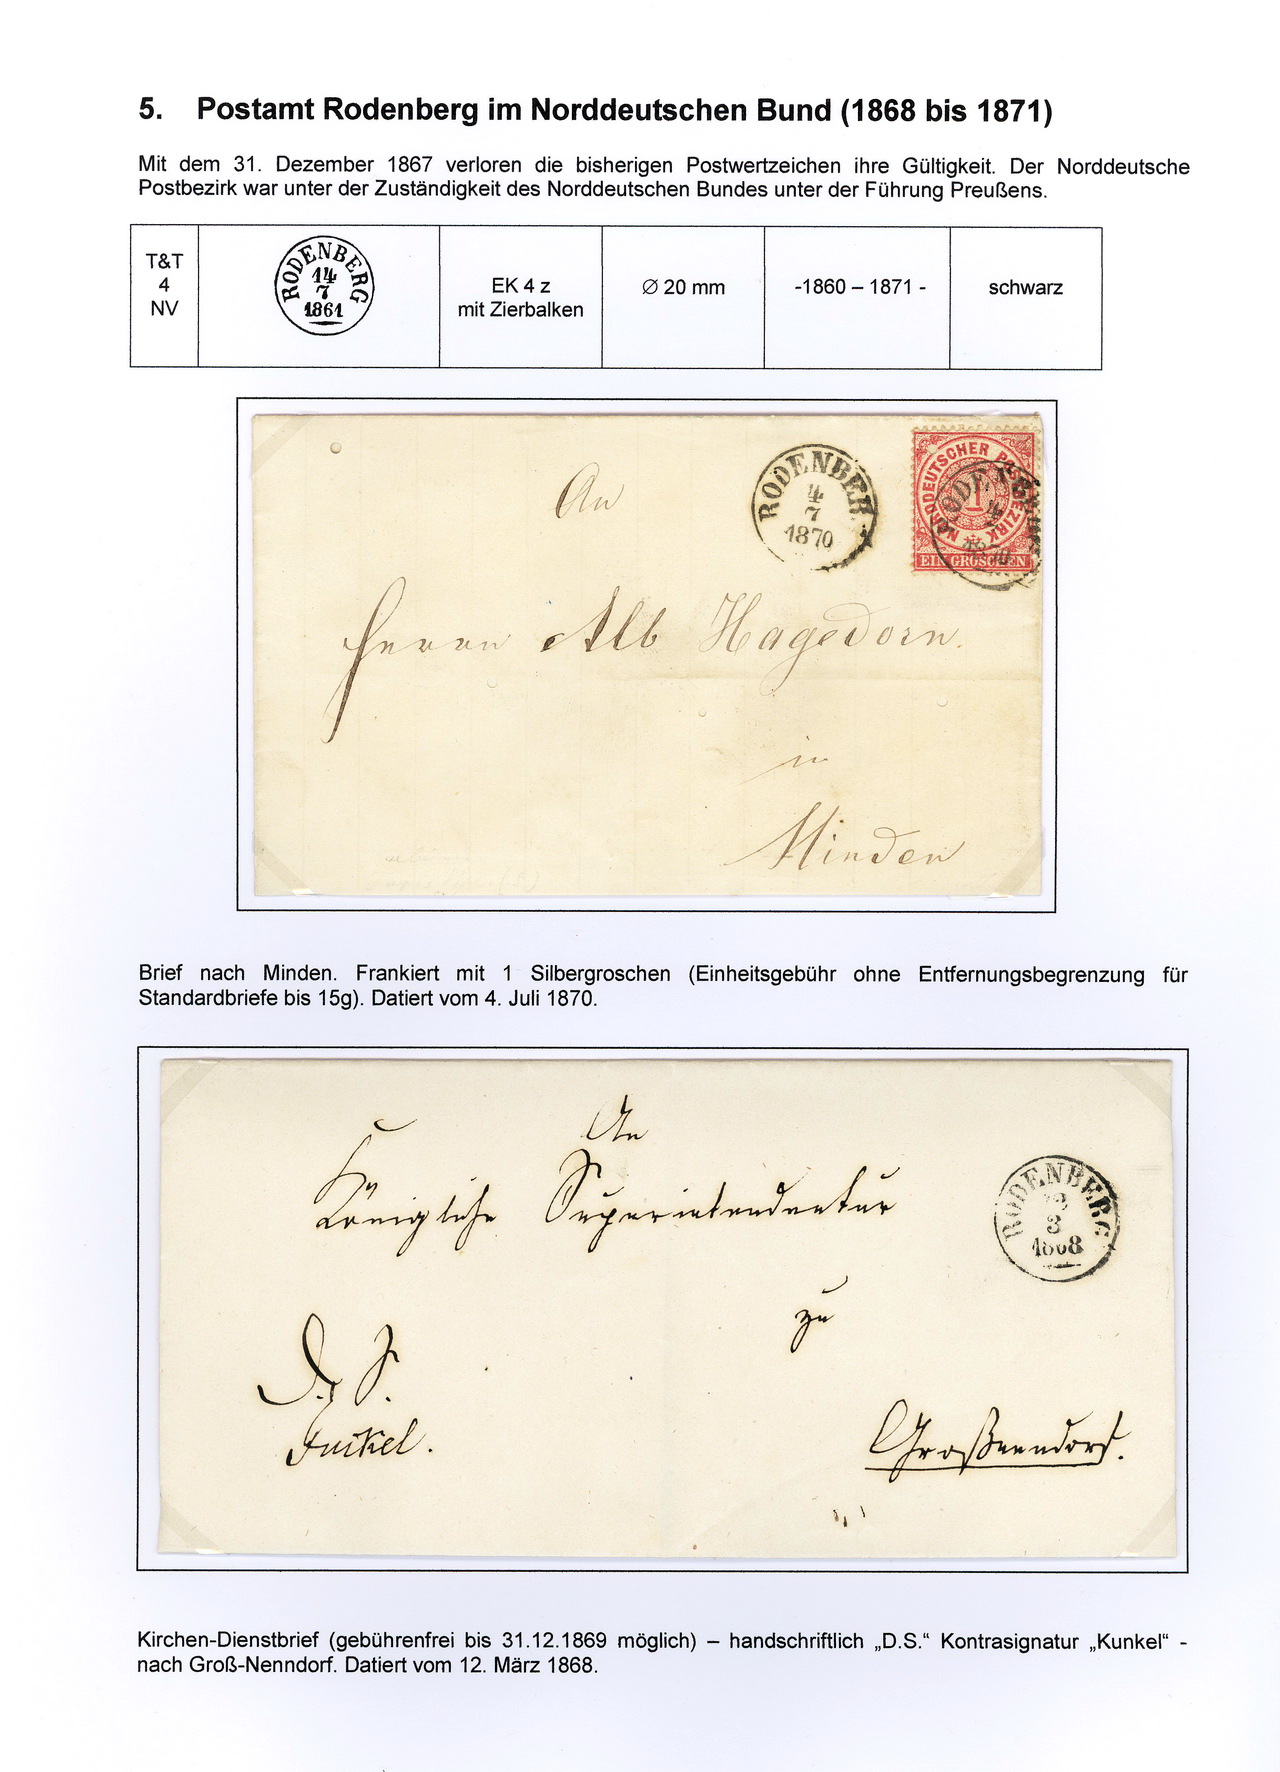 5. Postamt Rodenberg im Norddeutschen Bund (1868 bis 1871)
Mit dem 31. Dezember 1867 verloren die bisherigen Postwertzeichen ihre Gültigkeit. Der Norddeutsche
Postbezirk war unter der Zuständigkeit des Norddeutschen Bundes unter der Führung Preußens.
T&T
4
NV
RODENBERG
14
7
1861
EK 4 z
mit Zierbalken
Ø 20 mm
-1860 – 1871 -
schwarz
An
RODENBER
4
7
1870
NORDDEUTSCHER POSTBEZIRK
1
EIN GROSCHEN
Herrn Alb Hagedorn.
in
Minden
Brief nach Minden. Frankiert mit 1 Silbergroschen (Einheitsgebühr ohne Entfernungsbegrenzung für
Standardbriefe bis 15g). Datiert vom 4. Juli 1870.
An
Königliche Superintendentur
RODENBERG
3
1868
zu
D. S.
Großnendorf.
Kirchen-Dienstbrief (gebührenfrei bis 31.12.1869 möglich) – handschriftlich „D.S.“ Kontrasignatur „Kunkel“ -
nach Groß-Nenndorf. Datiert vom 12. März 1868.